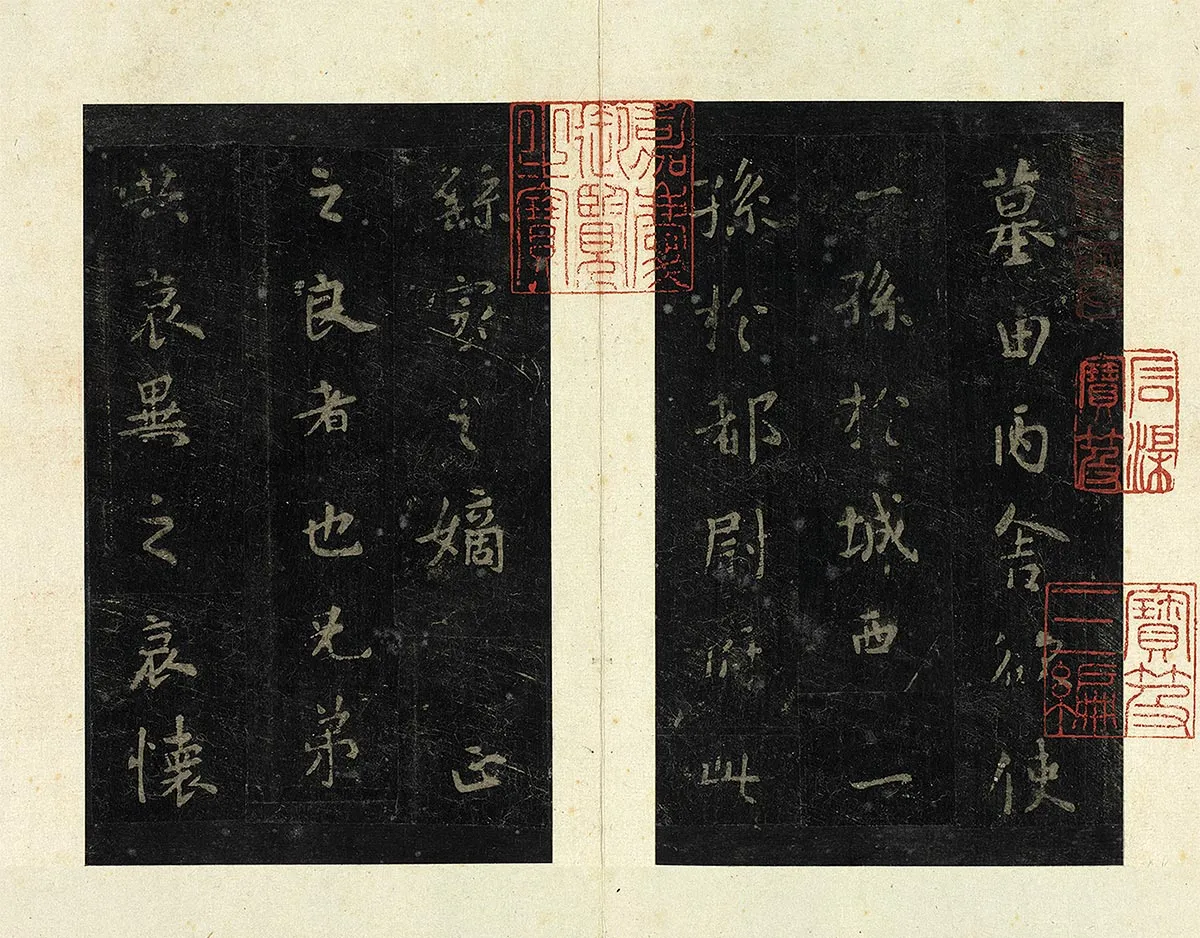 石渠
寶笈
寶笈
三編
墓田丙舍欲使
一孫於城西一
孫於都尉府此
嘉慶
御覽
之寶
繇家之嫡正
之良者也兄弟
共哀異之哀懷